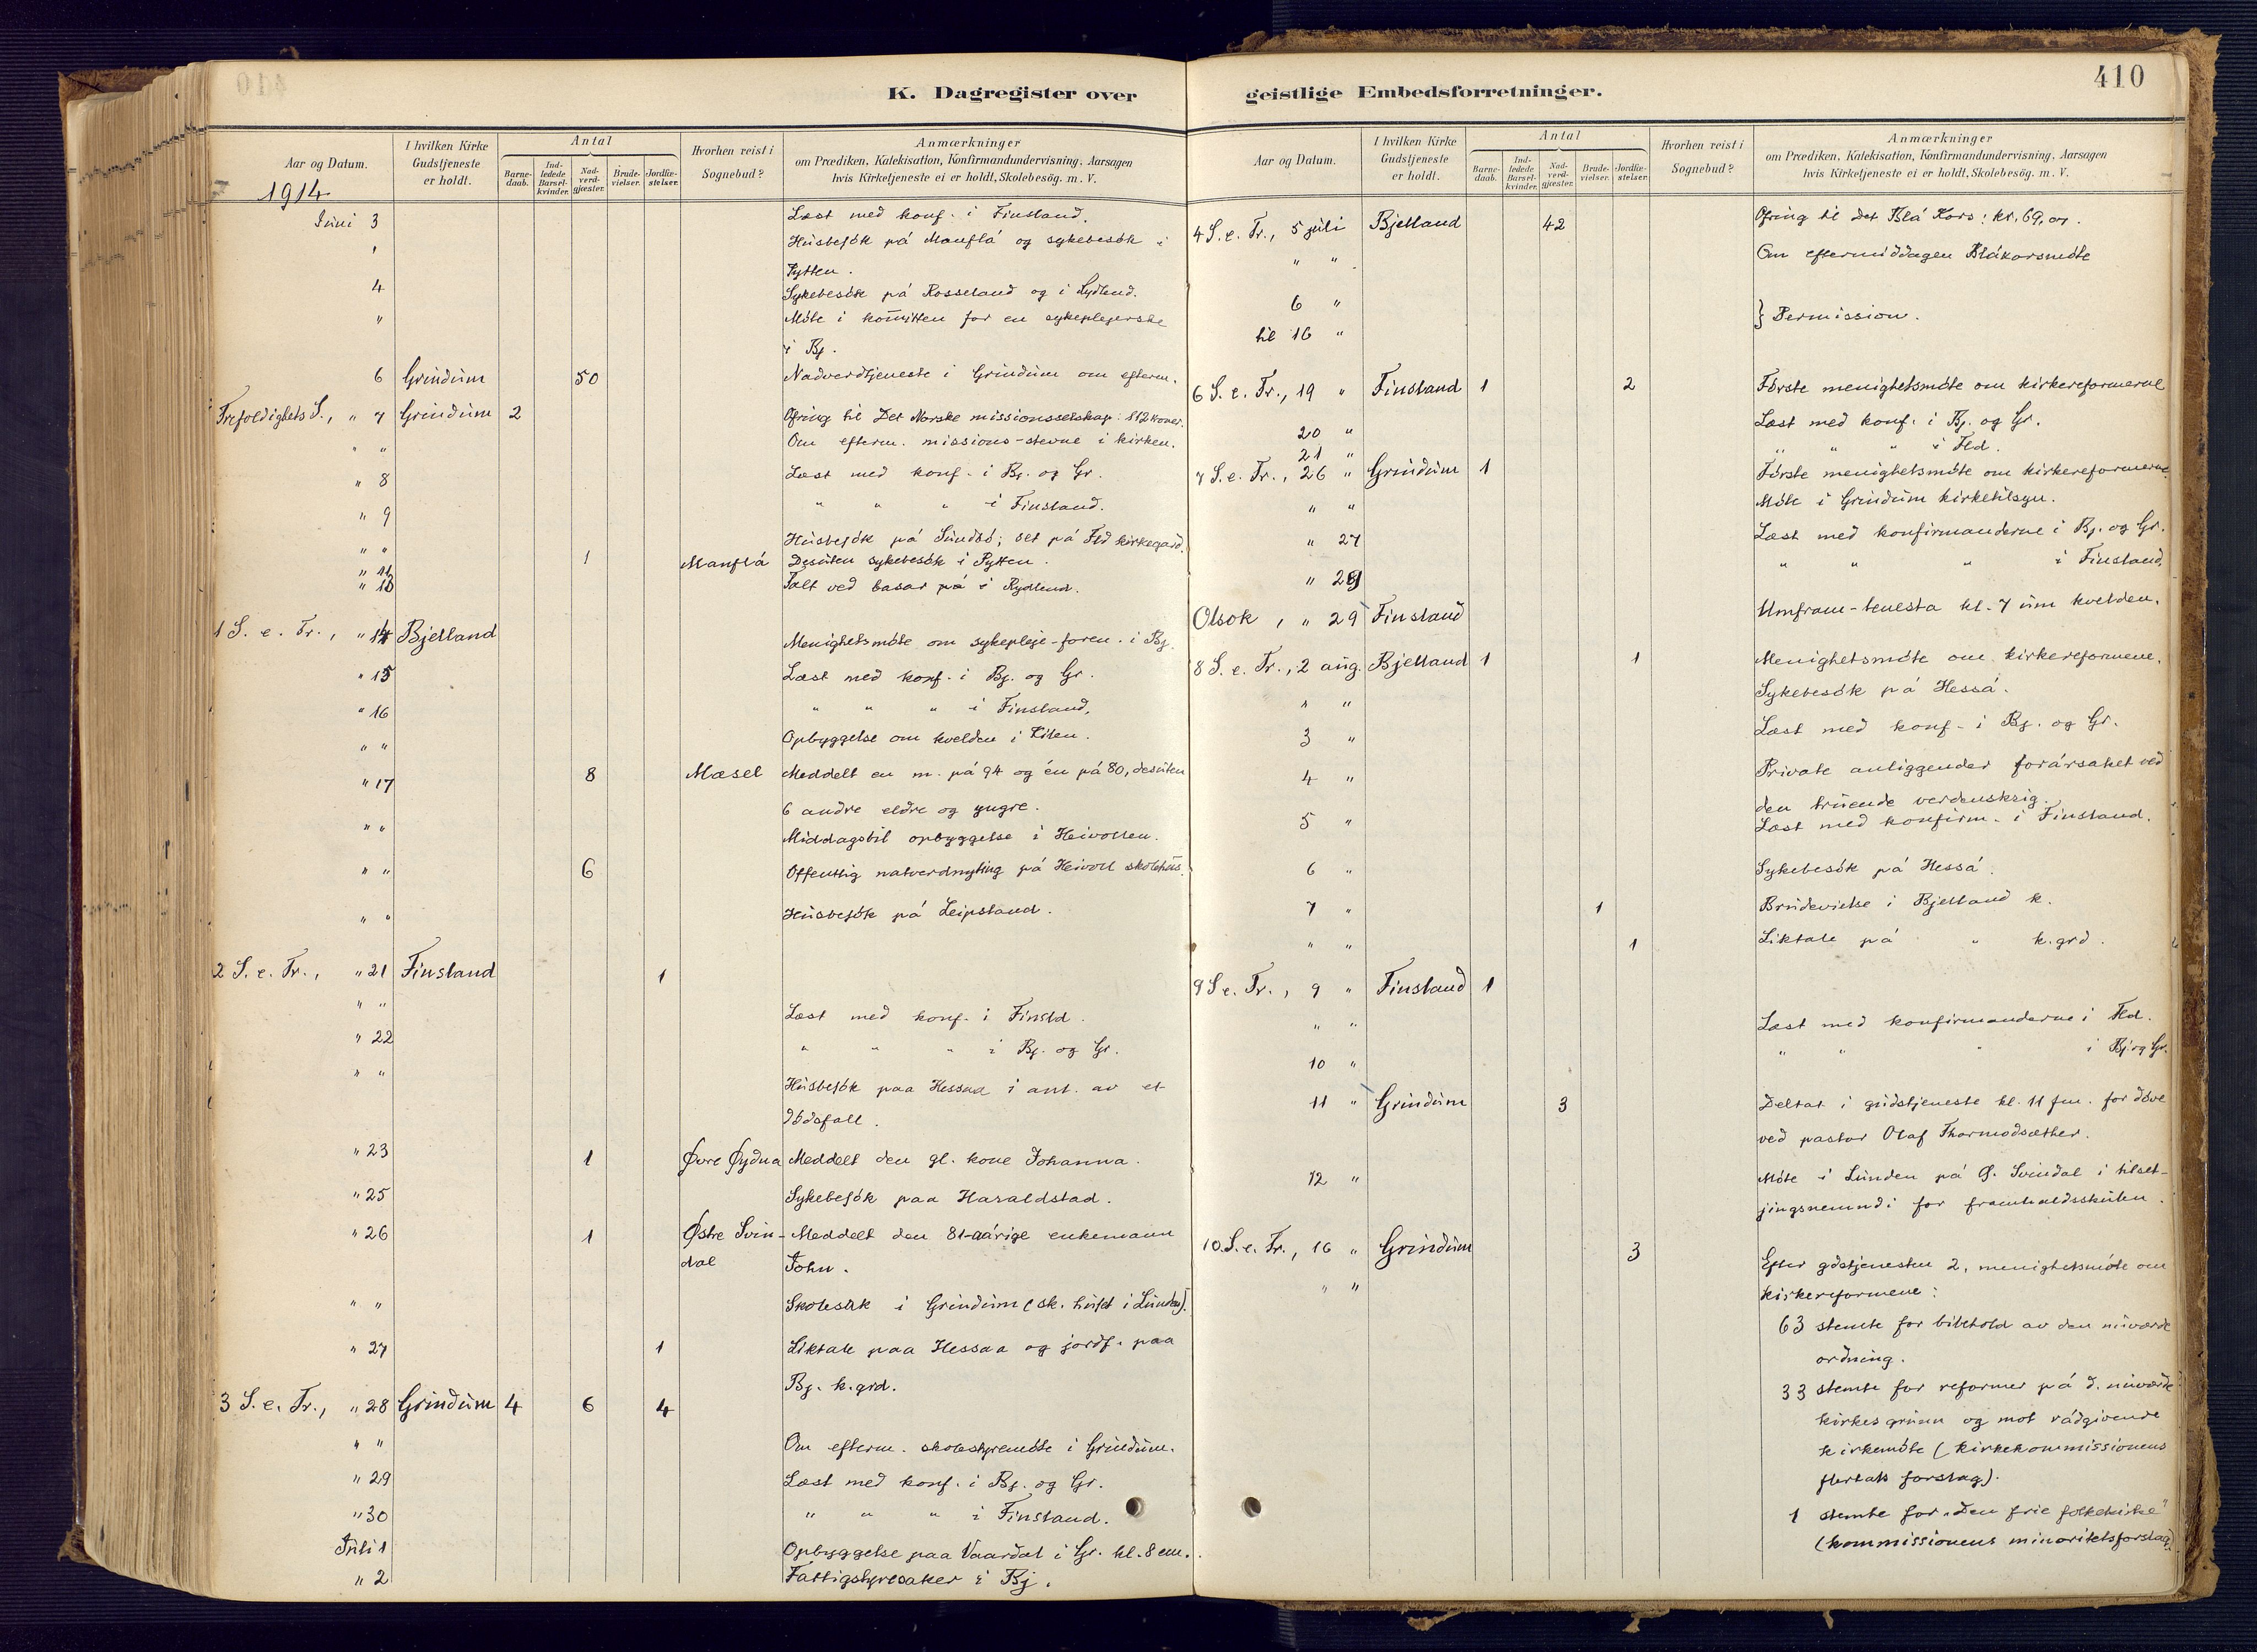 K. Dagregister over
Aar og Datum.
I hvilken Kirke Gudstjeneste er holdt.
Antal
Barne-daab.
Ind-ledede Barsel-kvinder.
Nad-verd-gjæster.
Brude-vielser.
Jordfæ-stelser.
Hvorhen reist i Sognebud?
Anmærkninger
om Prædiken, Katekisation, Konfirmandundervisning, Aarsagen
hvis Kirketjeneste ei er holdt, Skolebesög. m. V.
1914
Juni 3 Læst med konf. i Finsland.
" Husbesök på Manflå og sykebesök i
Pytten.
4 Sykebesök på Rosseland og i Lydlend.
" Möte i komitten for en sykeplejerske
i Bj.
6 Grindum 50 Nadverdtjeneste i Grindum om efterm.
Trefoldighets S., " 7 Grindum 2 Ofring til Det Norske missionsselskap: 112 kroner.
" " Om efterm. missions-stevne i kirken.
" 8 Læst med konf. i Bj. og Gr.
" 9 " " " i Finsland.
" " Husbesök på Sundsö; set på Fld kirkegard.
" 11 1 Manflå Desuten sykebesök i Pytten.
" 13 Talt ved basar på i Rydlend.
1 S. e. Tr., " 14 Bjelland Menighetsmöte om sykepleje-foren. i Bj.
" 15 Læst med konf. i Bj. og Gr.
" 16 " " " i Finsland.
" " Opbyggelse om kvelden i Kilen.
" 17 8 Mæsel Meddelt en m. på 94 og én på 80, desuten
6 andre eldre og yngre.
" " Middagsbil opbyggelse i Heivollen.
" " 6 Offentlig natverdnyting på Heivoll skolehus.
" " Husbesök på Leipsland.
2 S. e. Tr., " 21 Finsland 1
" " Læst med konf. i Finsld.
" 22 " " " i Bj. og Gr.
" " Husbesök paa Hessaa i anl. av et
dödsfall.
" 23 1 Övre Öydna Meddelt den gl. kone Johanna.
" 25 Sykebesök paa Haraldstad.
" 26 1 Østre Svin-dal Meddelt den 81-aårige enkemann
John.
" " Skolesak i Grindum (sk. huset i Lunden).
" 27 1 Liktale paa Hessaa og jordf. paa
Bj. k.grd.
3 S. e. Tr., " 28 Grindum 4 6 4
" " Om efterm. skolestyremöte i Grindum.
" 29 Læst med konf. i Bj. og Gr.
" 30 " " " i Finsland.
Juli 1 Opbyggelse paa Vaardal i Gr. kl. 8 em.
" 2 Fattigstyresaker i Bj.
geistlige Embedsforretninger.
410
Aar og Datum.
I hvilken Kirke Gudstjeneste er holdt.
Antal
Barne-daab.
Ind-ledede Barsel-kvinder.
Nad-verd-gjæster.
Brude-vielser.
Jordfæ-stelser.
Hvorhen reist i Sognebud?
Anmærkninger
om Prædiken, Katekisation, Konfirmandundervisning, Aarsagen
hvis Kirketjeneste ei er holdt, Skolebesög. m. V.
4 S. e. Tr., 5 juli Bjelland 42 Ofring til Det Blå Kors: kr. 69,07.
" " Om eftermiddagen Blåkorsmöte
6 "
til 16 " } Permission.
6 S. e. Tr., 19 " Finsland 1 2 Förste menighetsmöte om kirkereformerne
20 " Læst med konf. i Bj. og Gr.
21 " " " i Fld.
7 S. e. Tr., 26 " Grindum 1 Förste menighetsmöte om kirkereformerne.
" " Möte i Grindum kirketilsyn.
" 27 Læst med konfirmanderne i Bj. og Gr.
" 28 " " " i Finsland.
Olsok, " 29 Finsland Umfram-tenesta kl. 7 um kvelden.
8 S. e. Tr., 2 aug. Bjelland 1 1 Menighetsmöte om kirkereformene.
" " Sykebesök på Hesså.
3 " Læst med konf. i Bj. og Gr.
4 " Private anliggender forårsaket ved
den truende verdenskrig.
5 " Læst med konfirm. i Finsland.
6 " Sykebesök på Hesså.
7 " 1 Brudevielse i Bjelland k.
" " 1 Liktale på " k.grd.
9 S. e. Tr., 9 " Finsland 1
" " Læst med konfirmanderne i Fld.
10 " " " " i Bj. og Gr.
11 " Grindum 3 Deltat i gudstjeneste kl. 11 fm. for döve
ved pastor Olaf Thormodsæther.
12 " Möte i Lunden på Ö. Svindal i tilset-
jingsnemndi for framhaldsskulen.
10. S. e. Tr., 16 " Grindum 3 Efter gdstjenesten 2. menighetsmöte om
" " kirkereformene:
63 stemte for bibehold av den nuværde
ordning.
33 stemte for reformer på d. nuværde
kirkes grunn og mot rådgivende
kirkemöte (kirkekommissionens
flertals forslag).
1 stemte for „Den frie folkekirke"
(kommissionens minoritetsforslag).